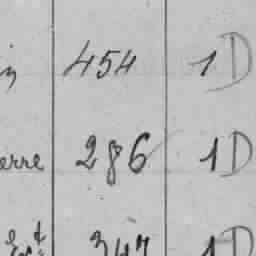 454 1D
erre 286 1D
347 1D